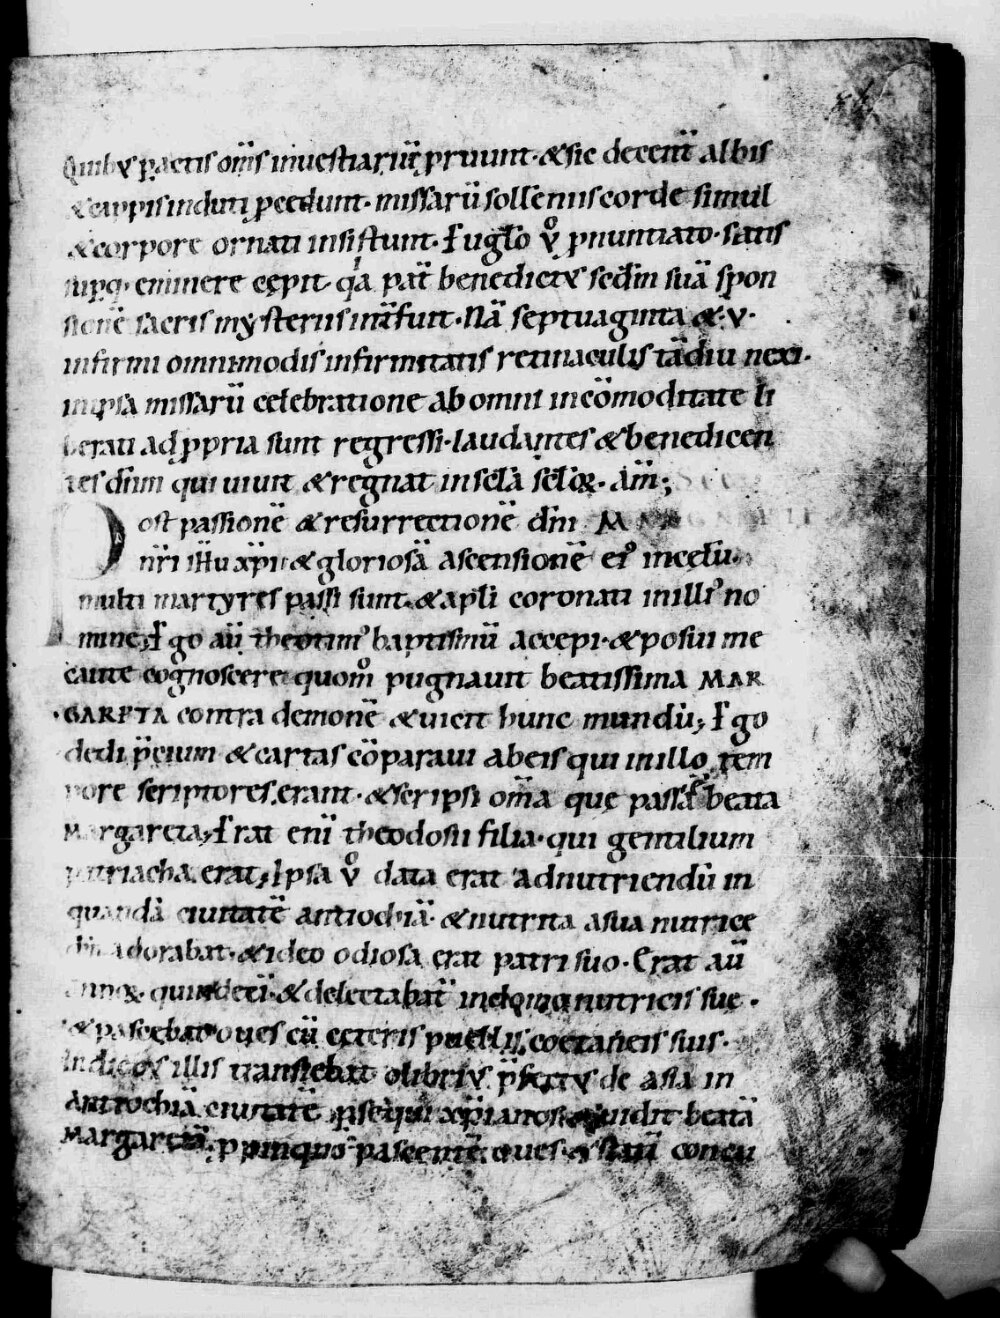 Quibꝰ pactis om̅s in uestiariū ꝓruunt· & sic decent̄ albis
& cappis induti ꝓcedunt· missarū sollēniis corde simul
& corpore ornati insistunt· Euglo v̊ ꝓnuntiato· satis
eminere cępit· qa pat̄ benedictꝰ sedm̄ suā spon
sionē sacris mysteriis int̄fuit· Nā septuaginta & .v·
infirmi omnimodis infirmitatis retinaculis tādiu nexi·
in ipsa missarū celebratione ab omni incōmoditate li
berati ad ꝓpria sunt regressi· laudantes & benedicen
tes dn̄m qui uiuit & regnat in sc̄la sc̄loꝝ· Am̄;
Post passionē & resurrectionē dn̄i
nr̄i ih̄u xp̄i· & gloriosā ascensionē eiꝰ in cęlū·
multi martyres passi sunt· & apl̄i coronati in illiꝰ no
mine; Ego au̅ theotimꝰ baptismū accepi· & posui me
caute cognoscere quom̊ pugnauit beatissima MAR
GARETA contra demonē & uicit hunc mundū; Ego
dedi p̄cium & cartas cōparaui ab eis qui in illo tem
pore scriptores erant· & scripsi om̄a que passa ē beata
Margareta; Erat eni̅ theodosii filia· qui gentilium
patriacha erat; Ipsa v̊ data erat ad nutriendū in
quandā ciuitatē antiochiā· & nutrita a sua nutrice
dn̄m adorabat· & ideo odiosa erat patri suo· Erat au̅
annoꝝ· quindeci̅· & delectabat̄ in domo nutricis sue·
& pascebat oues cū ceteris puellis coetaneis suis·
In diebꝰ illis transiebat olibriꝰ p̄fectꝰ de asia in
Antiochiā ciuitatē ꝑsequi xp̄ianos· & uidit beatā
Margaretā ꝓpinquo pascentē oues· & statī concu